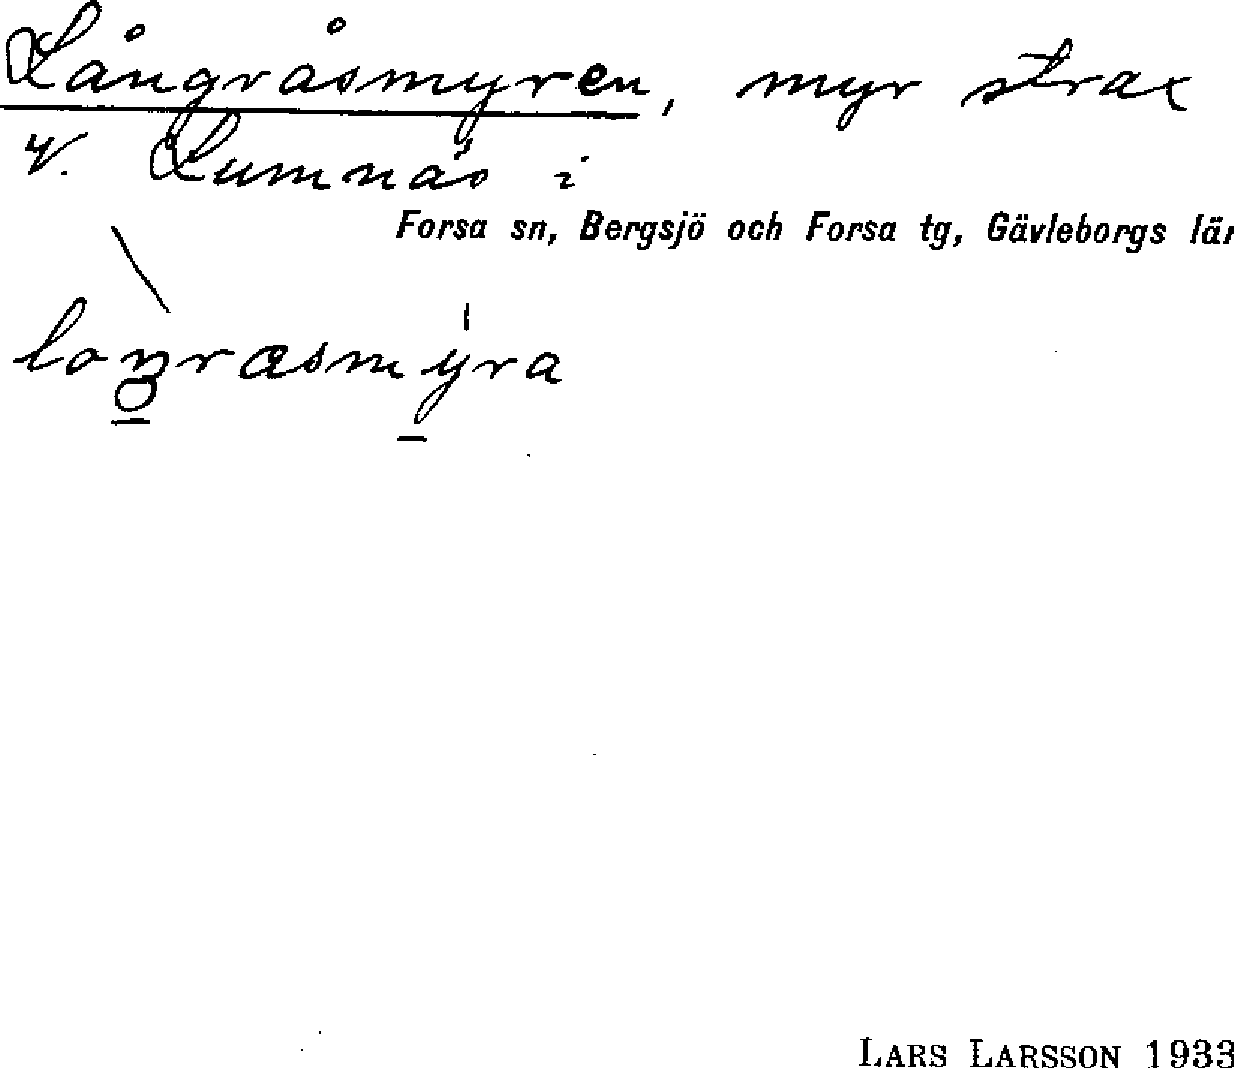 Långråsmyren, myr strax
v. Lumnäs i
Forsa sn, Bergsjö och Forsa tg, Gävleborgs län
loŋræsmyra
LARS LARSSON 1933